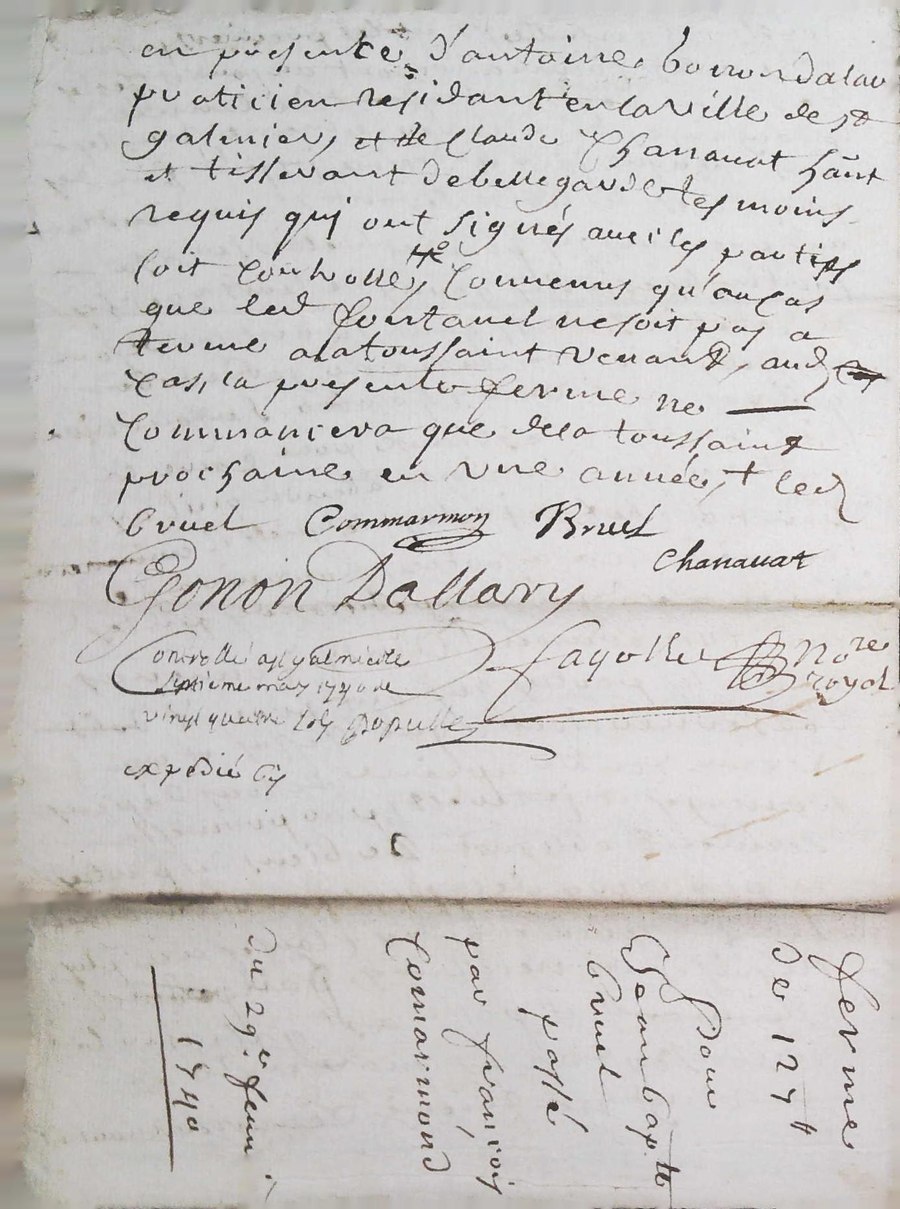 en presence d'antoine Gonon dalary
praticien residant en la ville de st
galmier, et de Claude Chanauat hāūt
et tisserant de bellegarde tesmoins
requis qui ont signés auec les parties
soit controllé, Conuenus qu'au cas
que led fontanel ne soit pas a
terme a la toussaint venant, aud
Cas, la presente ferme ne
Commancera que de la toussaint
prochaine en vne année, + led
bruel Commarmon Bruel
Chanauat
Gonon Dallary
Controllé a st galmier le
septieme may 1740 de
vingt quatre sols
fayolle Nore
royal
expedié
ferme
de 127 tt
Pour
Jean bap.te
bruel
passé
par francois
Comarmond
du 29e feur
1740